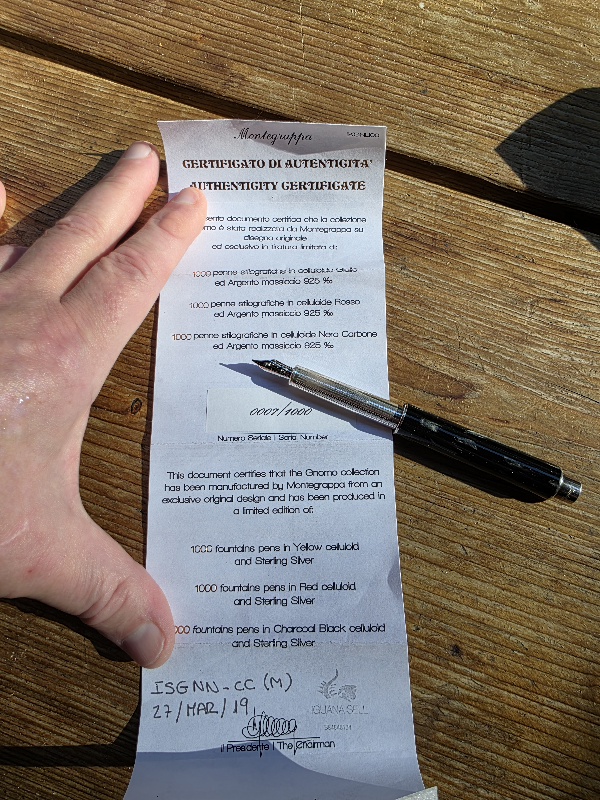 Montegrappa
CERTIFICATO DI AUTENTICITA'
AUTHENTICITY CERTIFICATE
documento certifica che la collezione
è stata realizzata da Montegrappa su
disegno originale
ed esclusivo in tiratura limitata di:
1000 penne stilografiche in celluloide Giallo
ed Argento massiccio 925 ‰
1000 penne stilografiche in celluloide Rosso
ed Argento massiccio 925 ‰
1000 penne stilografiche in celluloide Nero Carbone
ed Argento massiccio 925 ‰
0007/1000
Numero Seriale | Serial Number
This document certifies that the Gnomo collection
has been manufactured by Montegrappa from an
exclusive original design and has been produced in
a limited edition of:
1000 fountains pens in Yellow celluloid
and Sterling Silver
1000 fountains pens in Red celluloid
and Sterling Silver
000 fountains pens in Charcoal Black celluloid
and Sterling Silver
ISGNN-CC (M)
27/MAR/19
IGUANA SELL
Il Presidente | The Chairman